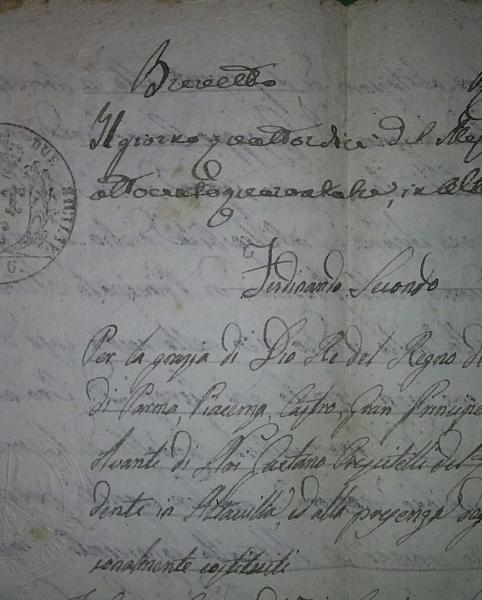 Brevetto
Il giorno quattordici del Me
ottocento quarantatre, in Al
Ferdinando Secondo
Per la grazia di Dio Re del Regno d
di Parma, Piacenza, Castro, Gran Principe
Avanti di Noi Gaetano del
dente in Altavilla, ed alla presenza de
sonalmente costituiti
DUE